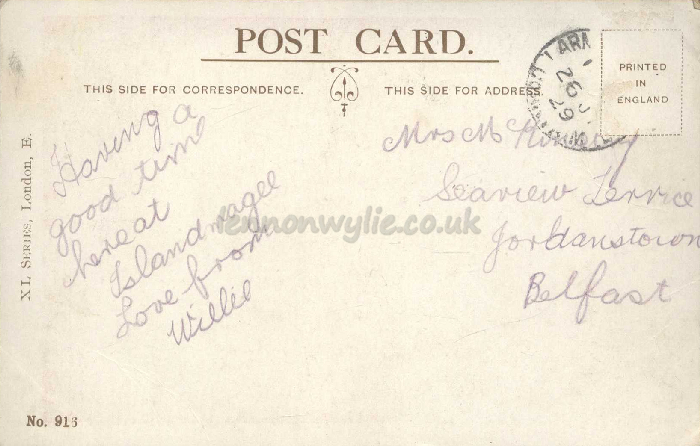 POST CARD.
THIS SIDE FOR CORRESPONDENCE.
THIS SIDE FOR ADDRESS
PRINTED
IN
ENGLAND
LARN
26 J
29
XL SERIES, London, E.
Having a
good time
here at
Islandmagee
Love from
Willie
Mrs M
Seaview Terrice
Jordanstown
Belfast
lennonwylie.co.uk
No. 916